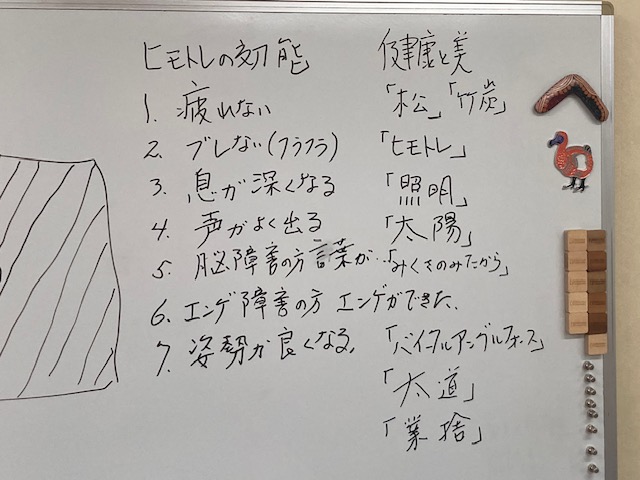 ヒモトレの効能
1. 疲れない
2. ブレない(フラフラ)
3. 息が深くなる
4. 声がよく出る
5. 脳障害の方言葉が…
6. エンゲ障害の方 エンゲができた.
7. 姿勢が良くなる.
健康と美
「松」「竹炭」
「ヒモトレ」
「照明」
「太陽」
「みくさのみたから」
「バイタルアングルフォース」
「太道」
「業捨」